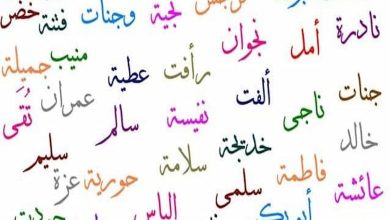 نجية وجنات فتنة خضر
نادرة أمل نجوان رأفت عطية منيب جميلة
جنات ناجى ألفت نفيسة سالم عمران تُقى
خالد خديجة سلامة سليم
عائشة فاطمة سلمى حورية عزة
الياس